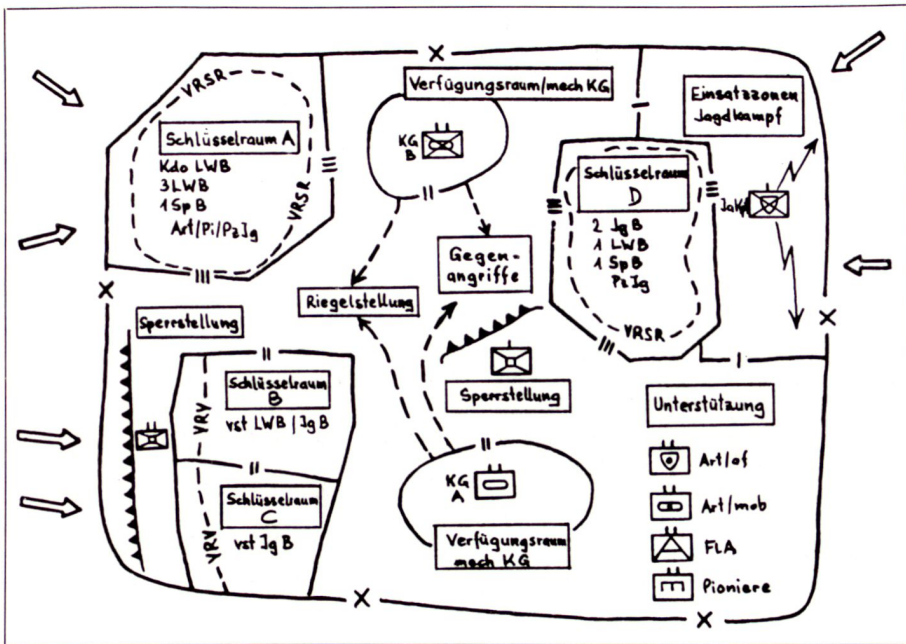 VRSR
Schlüsselraum A
Kdo LWB
3 LWB
1 SpB
Art/Pi/PzJg
VRSR
Verfügungsraum/mech KG
KG
B
Einsatzzonen
Jagdkampf
Schlüsselraum
D
2 JgB
1 LWB
1 SpB
PzJg
VRSR
Gegen-
angriffe
Riegelstellung
Sperrstellung
Schlüsselraum
B
vst LWB / JgB
VRV
Schlüsselraum
C
vst JgB
VRV
Sperrstellung
KG
A
Verfügungsraum
mech KG
Unterstützung
Art/mob
FLA
Pioniere